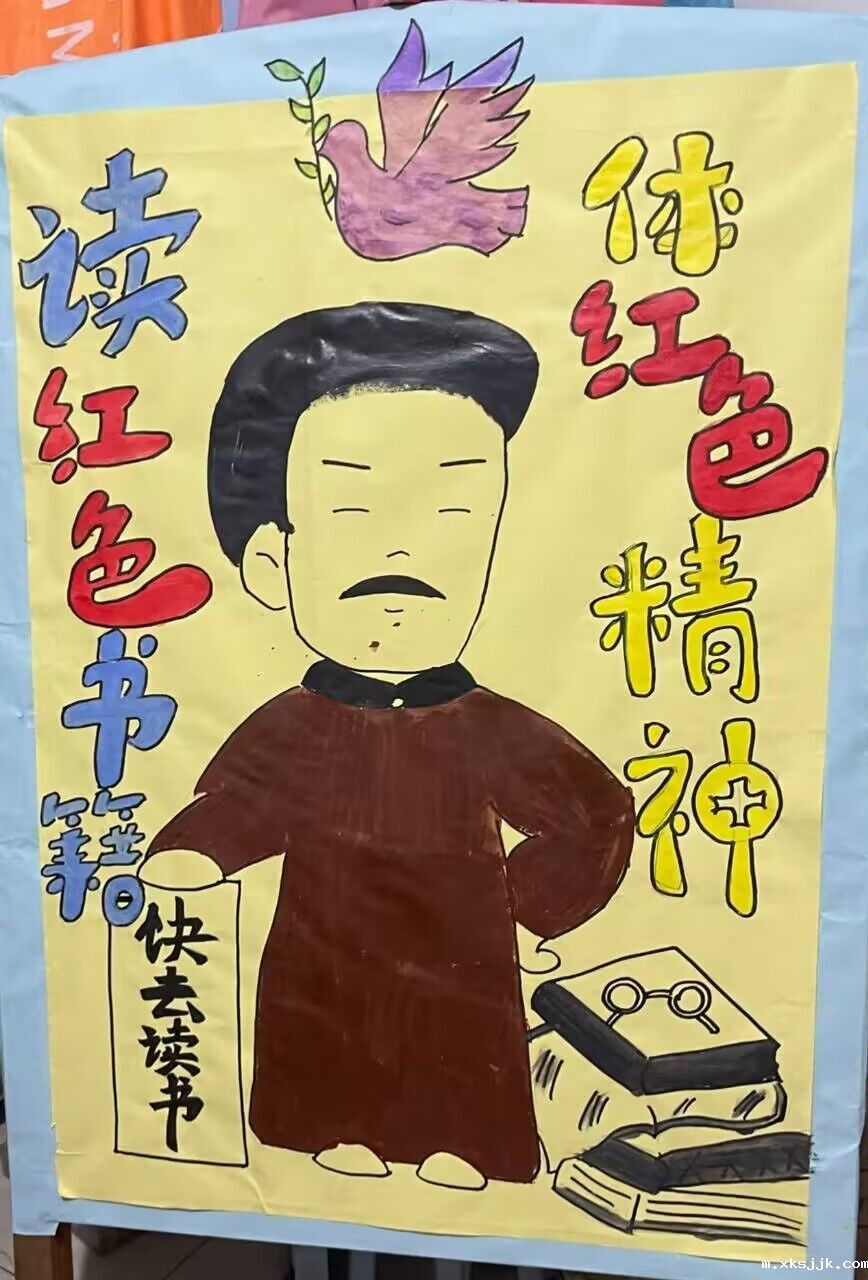 读红色书籍
体红色精神
快去读书
m.xksjjk.com